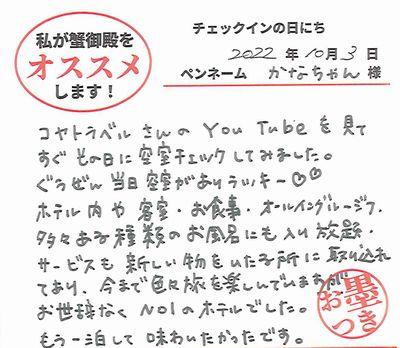 私が蟹御殿を
オススメ
します！
チェックインの日にち
2022年10月3日
ペンネーム かなちゃん様
コヤトラベルさんのYouTubeを見て
すぐその日に空室チェックしてみました。
ぐうぜん当日空室がありラッキー♡♡
ホテル内や客室・お食事・オールイングルーシブ、
多々ある種類のお風呂にも入り放題・
サービスも新しい物をいたる所に取り入れ
てあり、今まで色々旅を楽しんでいますが
お世辞なくNO1のホテルでした。
もう一泊して味わいたかったです。
お墨つき